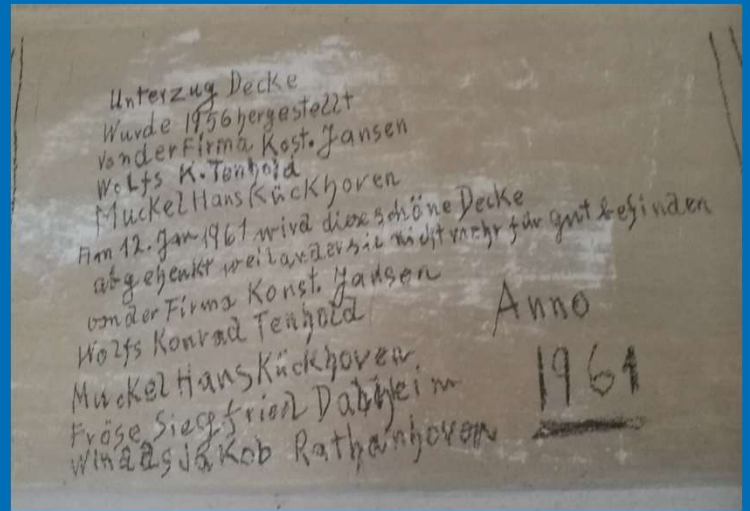 Unterzug Decke
Wurde 1956 hergestellt
von der Firma Kost. Jansen
Wolfs K. Tenhold
Muckel Hans Kückhoven
Am 12. Jan 1961 wird diese schöne Decke
abgehenkt weil nicht mehr für gut befinden
von der Firma Konst. Jansen
Wolfs Konrad Tenhold
Muckel Hans Kückhoven
Fröse Siegfried Dalheim
Jakob Rathanhoven
Anno
1961